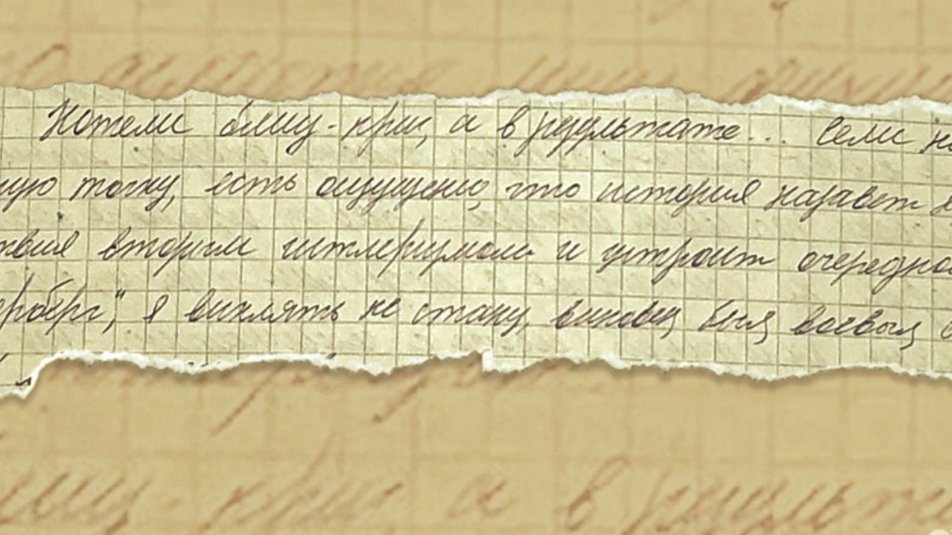 Хотели блиц-криг, а в результате... Если на
ную точку, есть ощущение, что история назовет
твия вторым гитлеризмом и устроит очередно
рберг", я вилять не стану, виновен, был, воевал,